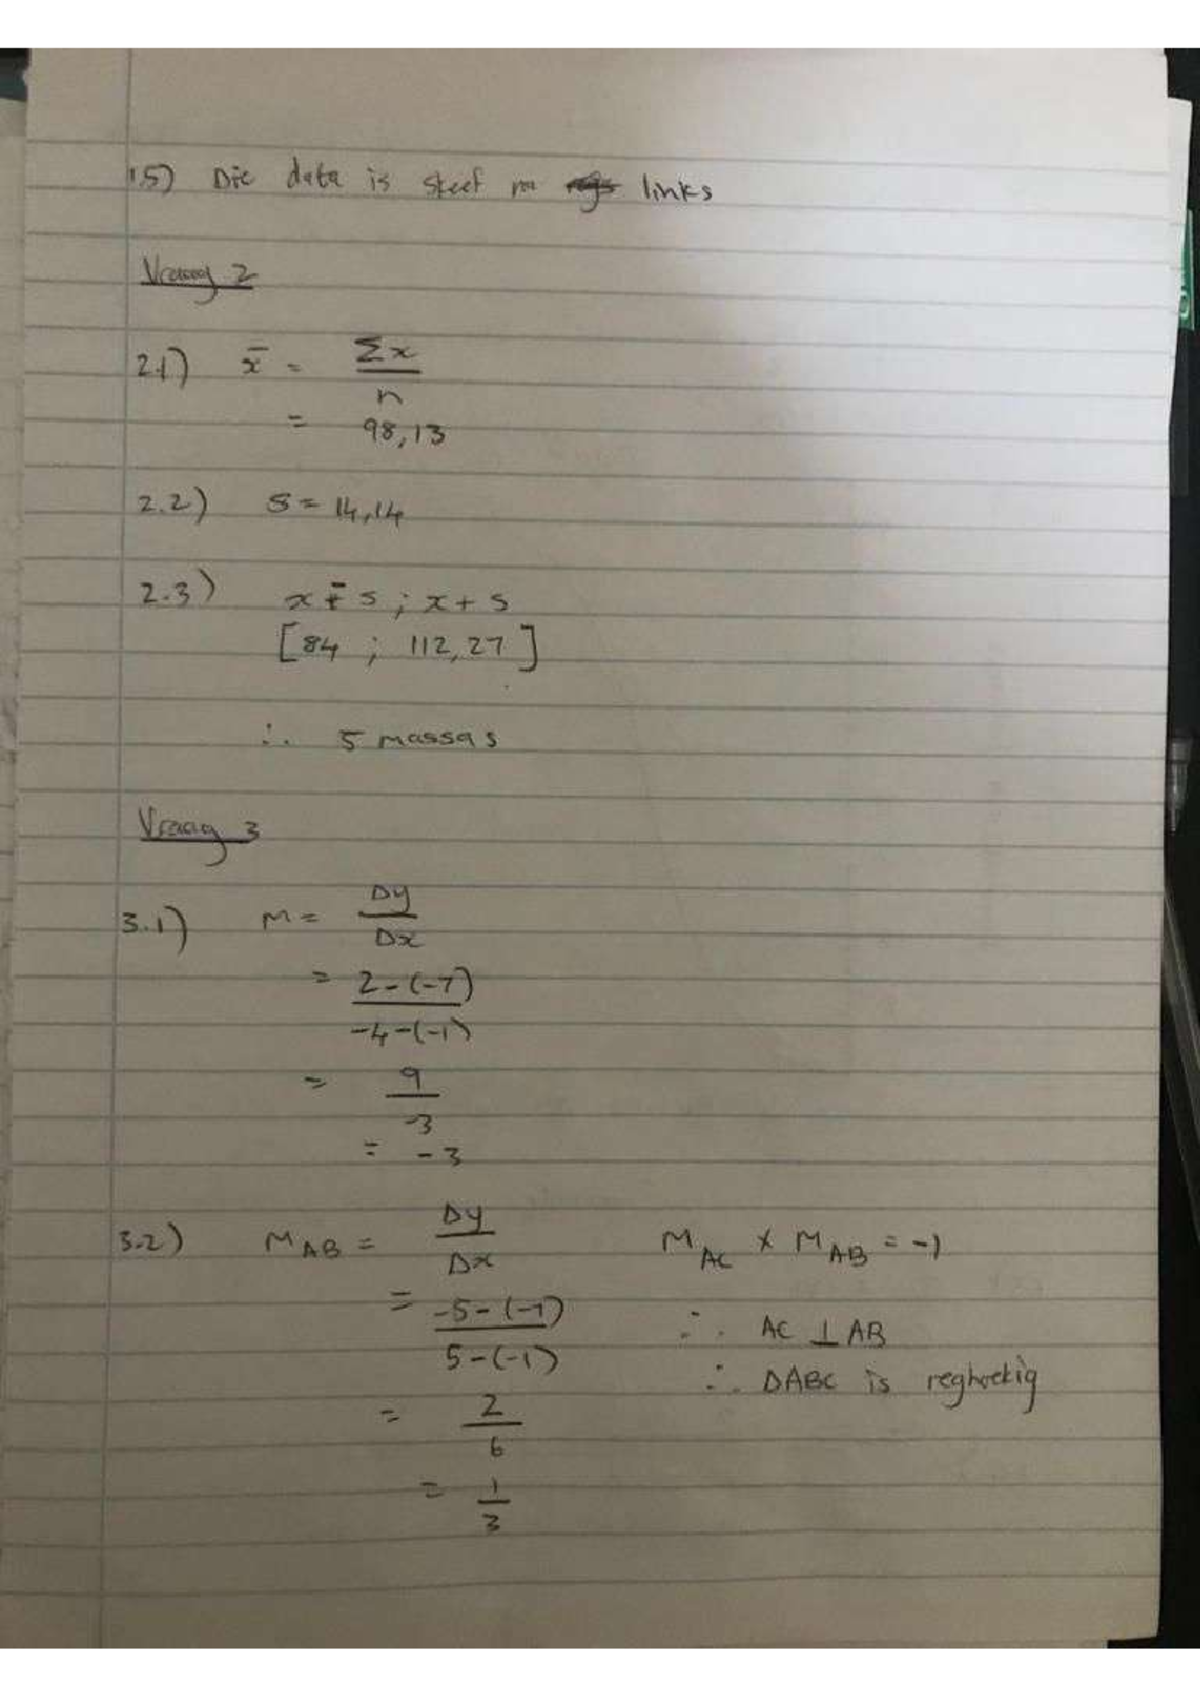 1.5) Die data is skeef na links
Vraag 2
2.1) x̄ = Σx
n
= 98,13
2.2) s = 14,14
2.3) x̄ - s ; x + s
[84 ; 112,27]
∴ 5 massas
Vraag 3
3.1) M = Δy
Δx
= 2-(-7)
-4-(-1)
= 9
-3
= -3
3.2) M_AB = Δy
Δx
= -5-(-7)
5-(-1)
= 2
6
= 1
3
M_AC × M_AB = -1
∴ AC ⊥ AB
∴ ΔABC is reghoekig